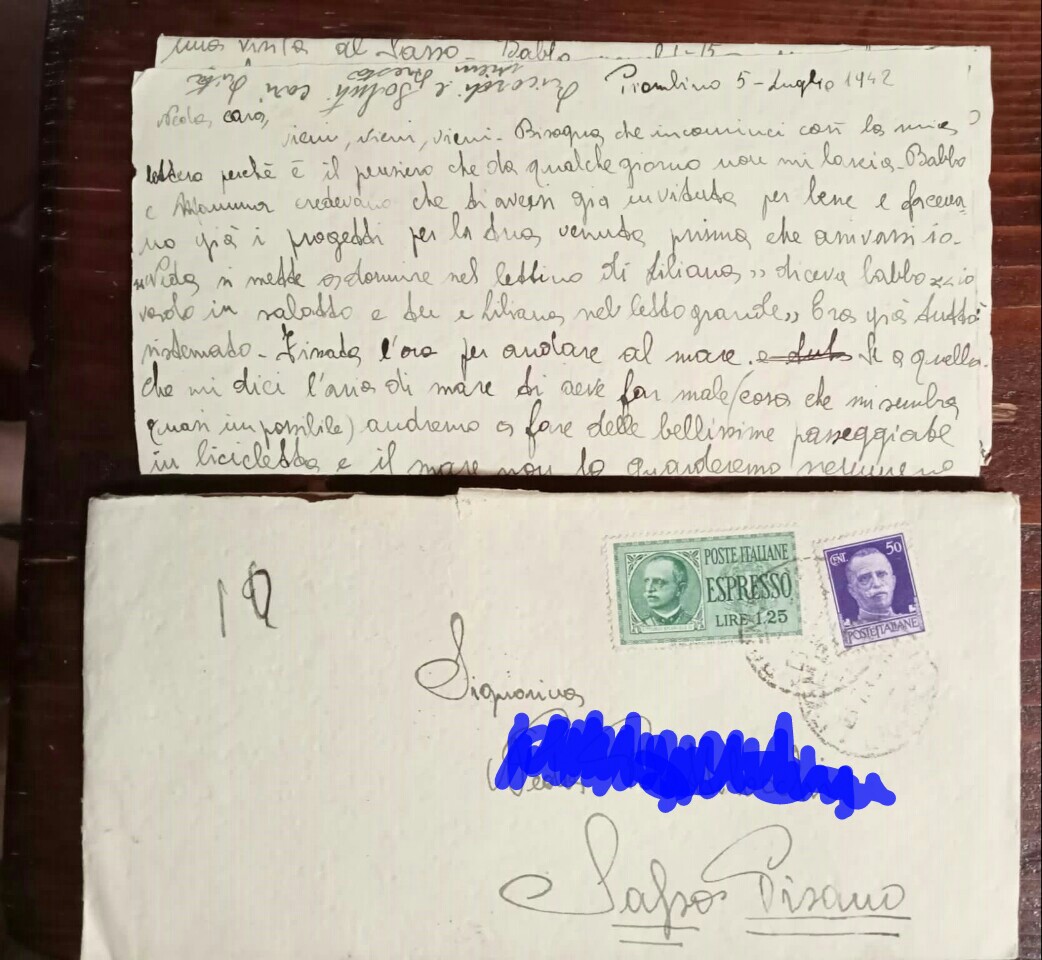 una visita al Sasso - Babbo
Ricordi e saluti cari
presto
Piombino 5-Luglio 1942
cara,
vieni, vieni, vieni. Bisogna che incominci così la mia
lettera perchè è il pensiero che da qualche giorno non mi lascia. Babbo
e Mamma credevano che ti avessi già invitata per bene e faceva-
no già i progetti per la tua venuta prima che arrivassi io.
si mette a dormire nel lettino di Liliana" diceva babbo "io
vado in salotto e te e Liliana nel letto grande" Era già tutto
sistemato. Fissata l'ora per andare al mare. Se a quello
che mi dici l'aria di mare ti deve far male (cosa che mi sembra
quasi impossibile) andremo a fare delle bellissime passeggiate
in bicicletta e il mare non lo guarderemo nemmeno
POSTE ITALIANE
ESPRESSO
LIRE 1.25
CENT. 50
POSTE ITALIANE
Signorina
Sasso Pisano